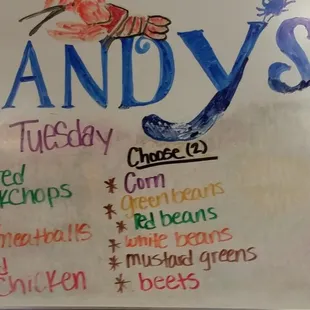 ANDY'S
Tuesday
Choose (2)
ed
kchops
meatballs
d
Chicken
* Corn
* green beans
* Red beans
* white beans
* mustard greens
* beets